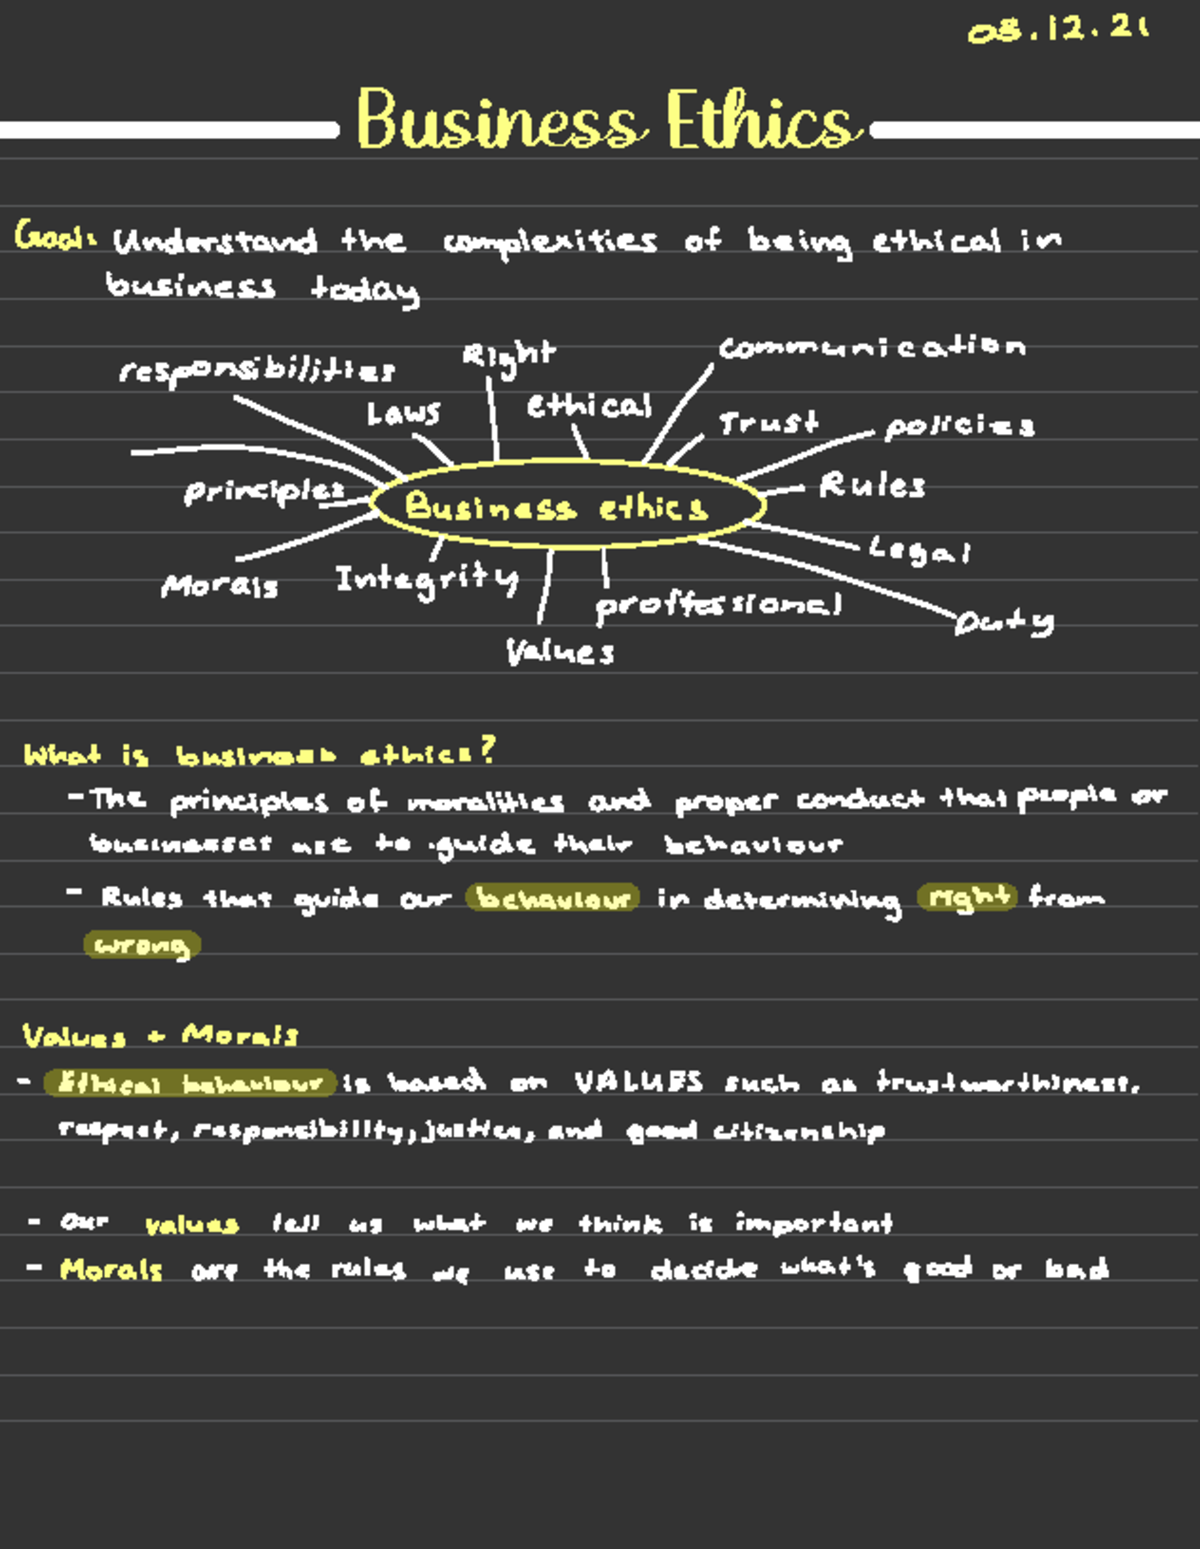 08.12.21
Business Ethics
Goal: Understand the complexities of being ethical in
business today
responsibilities
Right
communication
Laws
ethical
Trust
policies
principles
Business ethics
Rules
Legal
Morals
Integrity
proffessional
Duty
Values
What is business ethics?
-The principles of moralities and proper conduct that people or
businesses use to guide their behaviour
- Rules that guide our behaviour in determining right from
wrong
Values + Morals
- Ethical behaviour is based on VALUES such as trustworthiness,
respect, responsibility, justice, and good citizenship
- Our values tell us what we think is important
- Morals are the rules we use to decide what's good or bad